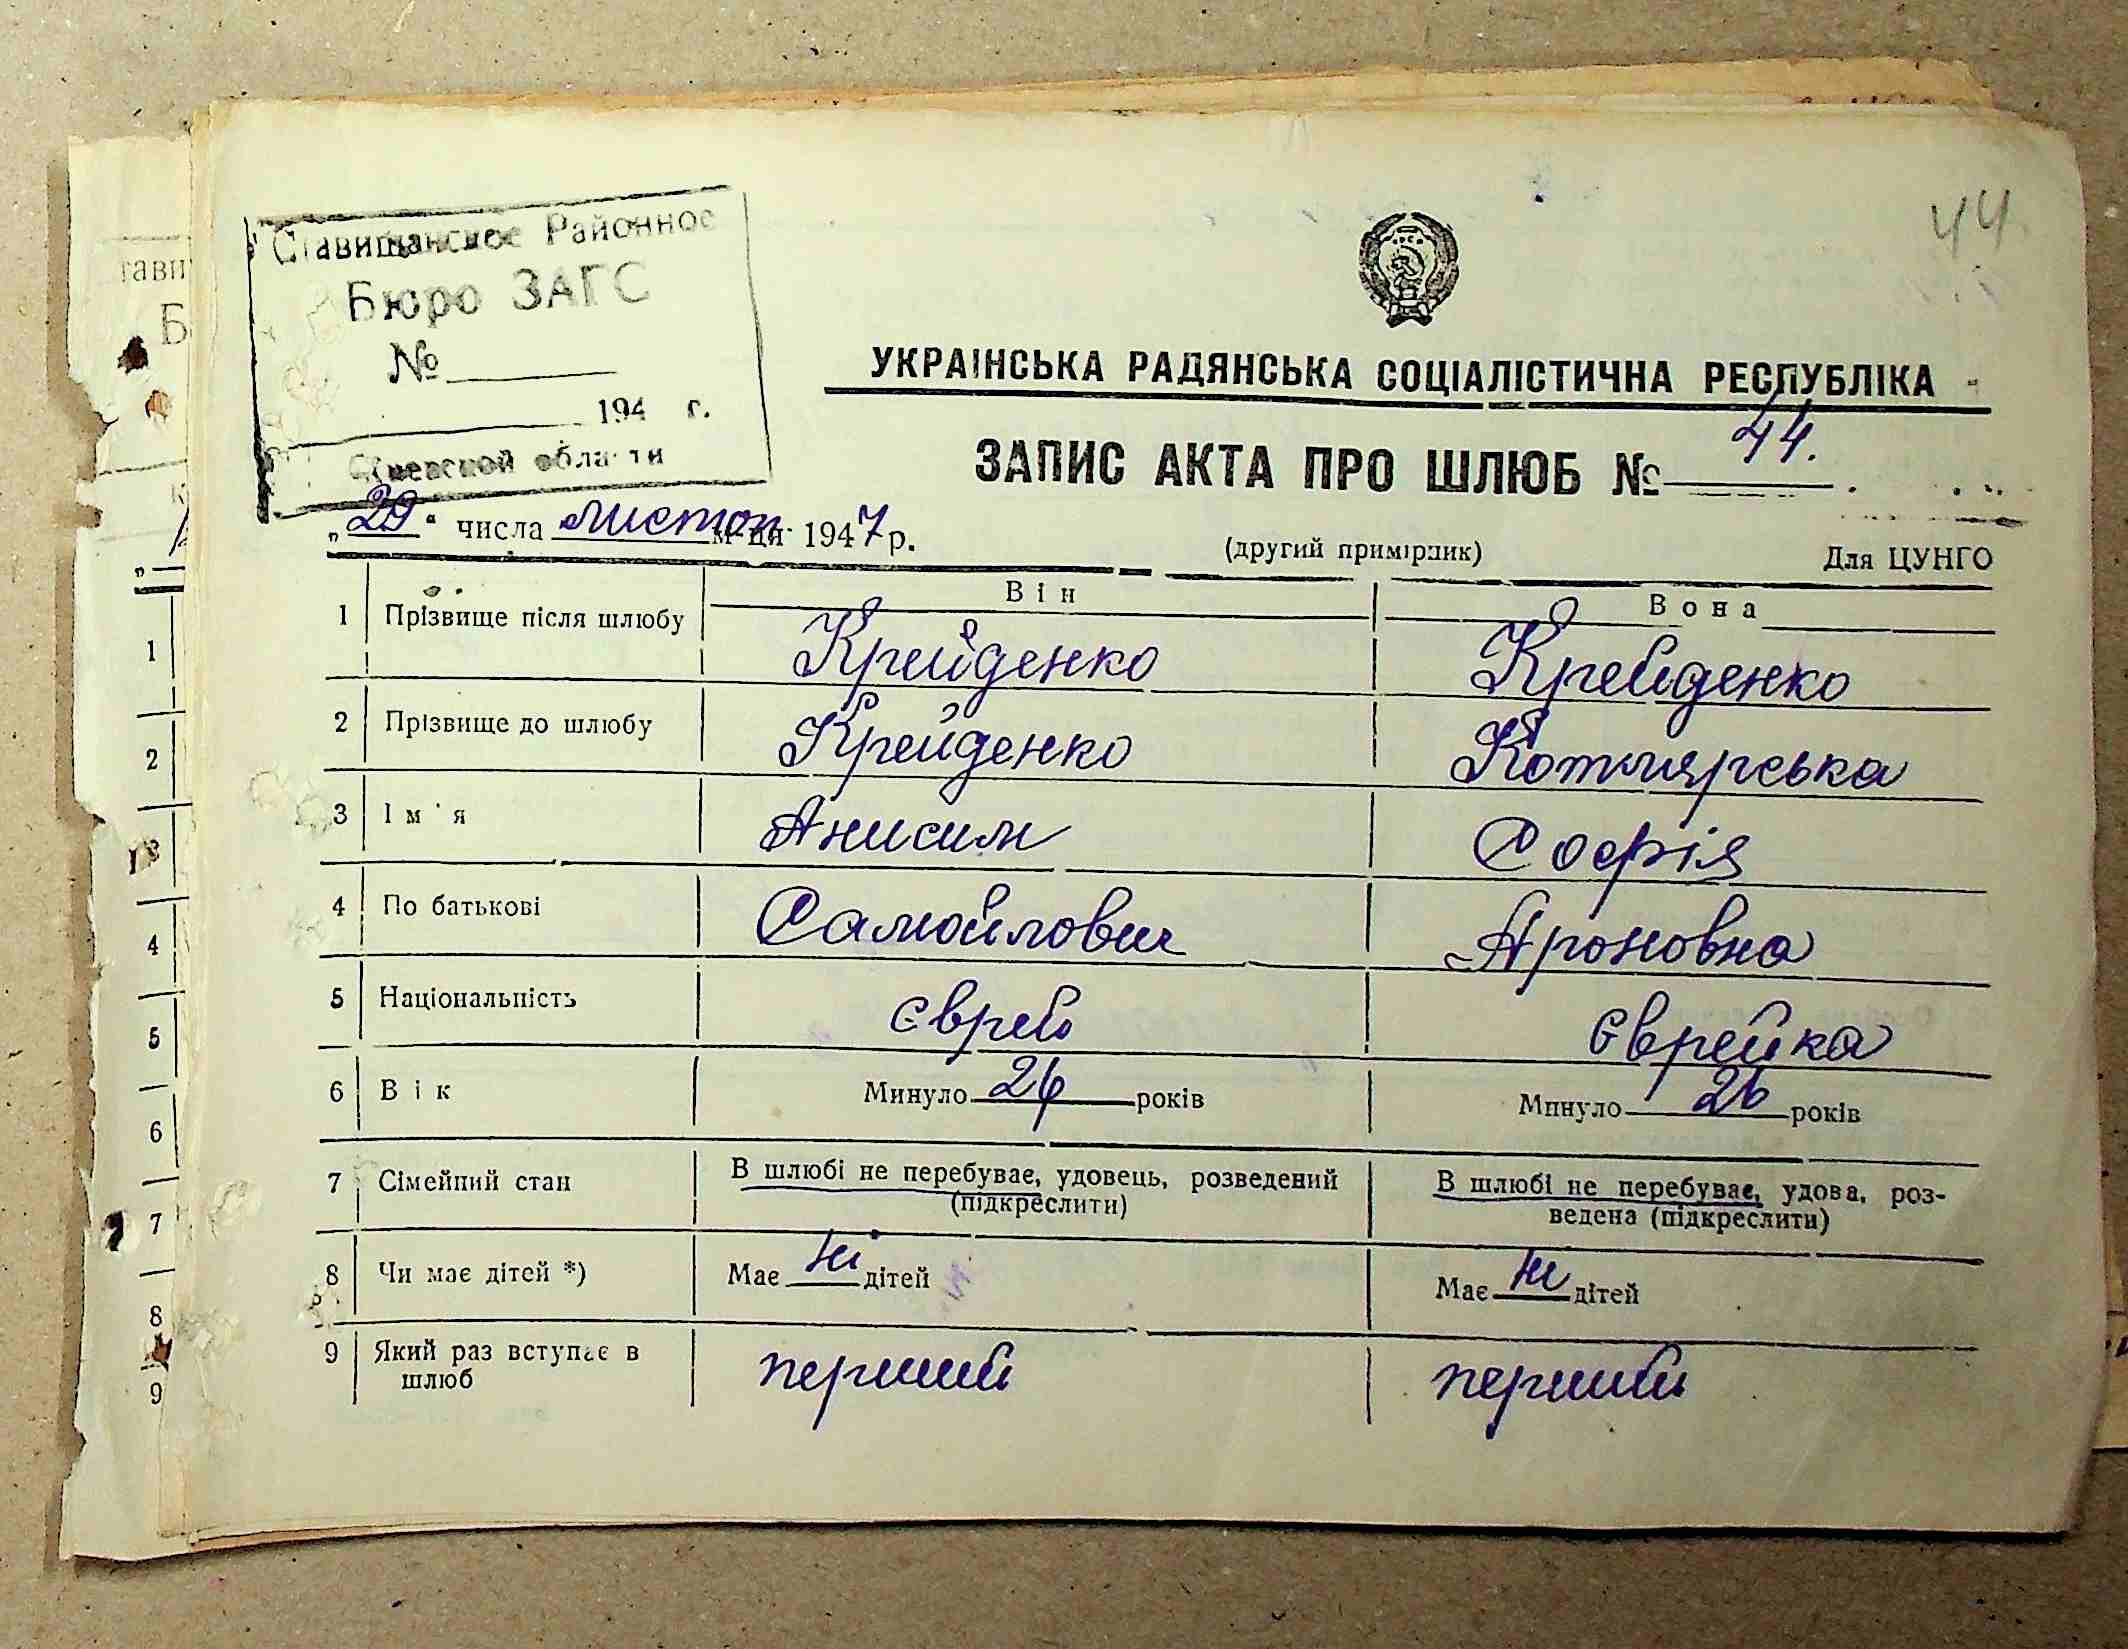 44
Ставищанское Районное
Бюро ЗАГС
№
194 г.
Киевской области
УКРАЇНСЬКА РАДЯНСЬКА СОЦІАЛІСТИЧНА РЕСПУБЛІКА
ЗАПИС АКТА ПРО ШЛЮБ № 44.
„29“ числа листоп м-ця 1947 р.
(другий примірник) Для ЦУНГО
Він Вона
1 Прізвище після шлюбу Крейденко Крейденко
2 Прізвище до шлюбу Крейденко Котлярська
3 Ім'я Анисим Софія
4 По батькові Самойлович Ароновна
5 Національність єврей єврейка
6 Вік Минуло 26 років Минуло 26 років
7 Сімейний стан В шлюбі не перебуває, удовець, розведений (підкреслити) В шлюбі не перебуває, удова, роз-
ведена (підкреслити)
8 Чи має дітей *) Має ні дітей Має ні дітей
9 Який раз вступає в перший перший
шлюб
тави
Б
1
2
3
4
5
6
7
8
9